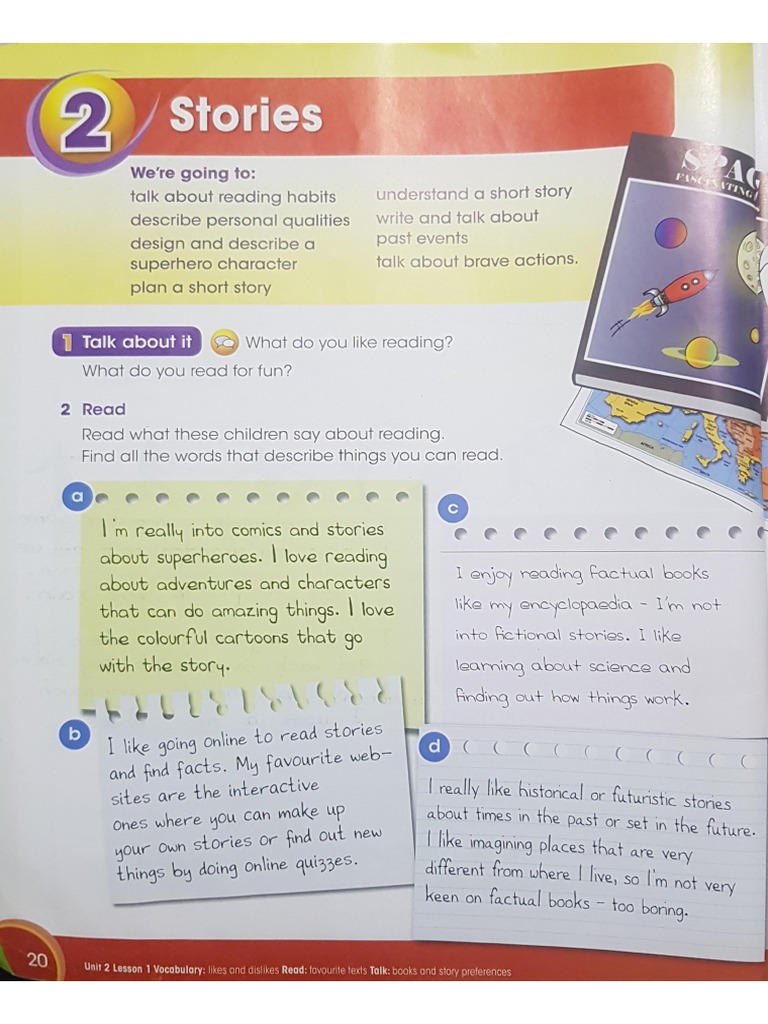 2 Stories
We're going to:
talk about reading habits
describe personal qualities
design and describe a
superhero character
plan a short story
understand a short story
write and talk about
past events
talk about brave actions.
FASCINATING
1 Talk about it What do you like reading?
What do you read for fun?
2 Read
Read what these children say about reading.
Find all the words that describe things you can read.
a
I'm really into comics and stories
about superheroes. I love reading
about adventures and characters
that can do amazing things. I love
the colourful cartoons that go
with the story.
b
I like going online to read stories
and find facts. My favourite web-
sites are the interactive
ones where you can make up
your own stories or find out new
things by doing online quizzes.
c
I enjoy reading factual books
like my encyclopaedia – I'm not
into fictional stories. I like
learning about science and
finding out how things work.
d
I really like historical or futuristic stories
about times in the past or set in the future.
I like imagining places that are very
different from where I live, so I'm not very
keen on factual books – too boring.
20 Unit 2 Lesson 1 Vocabulary: likes and dislikes Read: favourite texts Talk: books and story preferences